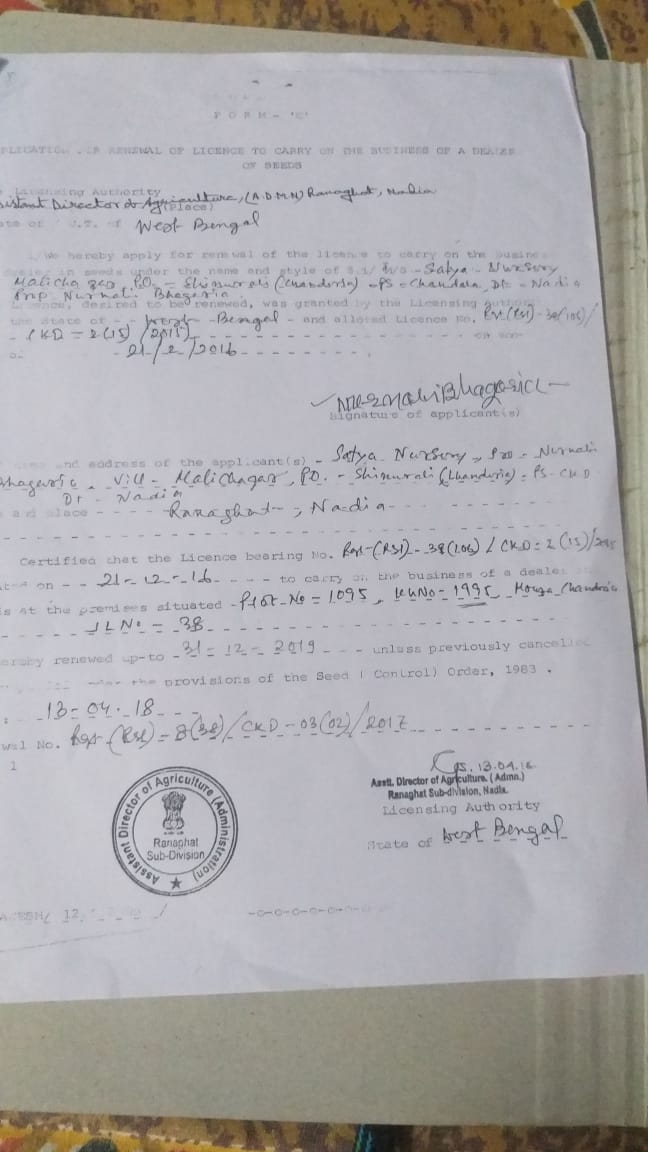 FORM - 'C'
PLICATION FOR RENEWAL OF LICENCE TO CARRY ON THE BUSINESS OF A DEALER
OF SEEDS
Licensing Authority
sistant Director of Agriculture, (A.D.M.N) Ranaghat, Nadia
(Place)
ate of U.T. of West Bengal
We hereby apply for renewal of the licence to carry on the busine
in seeds under the name and style of - Satya - Nursery
P.O. = Shimurali (Chanduria) - PS = - Nadia
Prop Nirmal Bhagaria
Licence, desired to be renewed, was granted by the Licensing Author
the State of - West - Bengal - and allowed Licence No.
- CKD = 2(15) /2015)
21/2/2016
Signature of applicant(s)
and address of the applicant(s) - Satya Nursery, Pro -
Vill - Malichagar, PO. - Shimurali (Chanduria) - PS - CKD
Dt - Nadia
and place - Ranaghat - , Nadia -
Certified that the Licence bearing No. Rgs-(RSI) - 38(106) / CKD = 2(15)/2015
ted on - - 21-12-16 - - - - to carry on the business of a dealer
s at the premises situated - Plot - No = 1095, = 1995, Mouza Chanduria
JL No = 38
ereby renewed up-to 31 = 12 - 2019 - - - unless previously cancelled
under the provisions of the Seed ( Control) Order, 1983 .
: 13-04.18
wal No. = 8(38)/CKD-03(02)/2017
1
13.04.18
Asstt. Director of Agriculture. (Admn.)
Ranaghat Sub-division, Nadia.
Licensing Authority
State of West Bengal
Assistant Director of Agriculture (Administration)
Ranaghat
Sub-Division
12
-o-o-o-o-o-o-